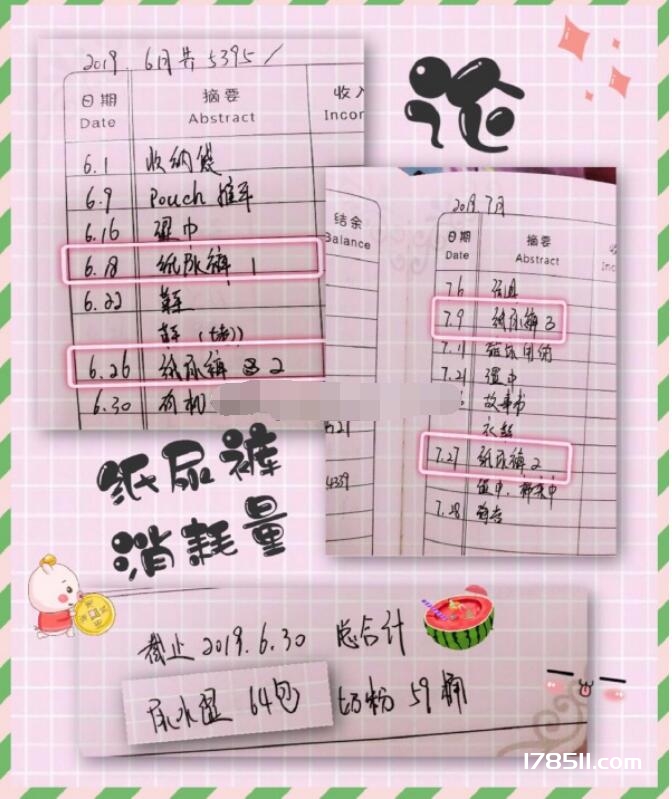 论
2019. 6月共5395/
日期 摘要 收入
Date Abstract Incom
6.1 收纳袋
6.9 Pouch 推车
6.16 湿巾
6.18 纸尿裤 1
6.22
6.26 纸尿裤 2
6.30 有机
2019 7月
结余 日期 摘要
Balance Date Abstract Inc
7.6
7.9 纸尿裤 3
7.11
7.21 湿巾
故事书
4339
7.27 纸尿裤 2
湿巾、棉柔巾
7.28
纸尿裤
消耗量
截止 2019.6.30 总合计
尿不湿 64包 奶粉 59桶
178511.com